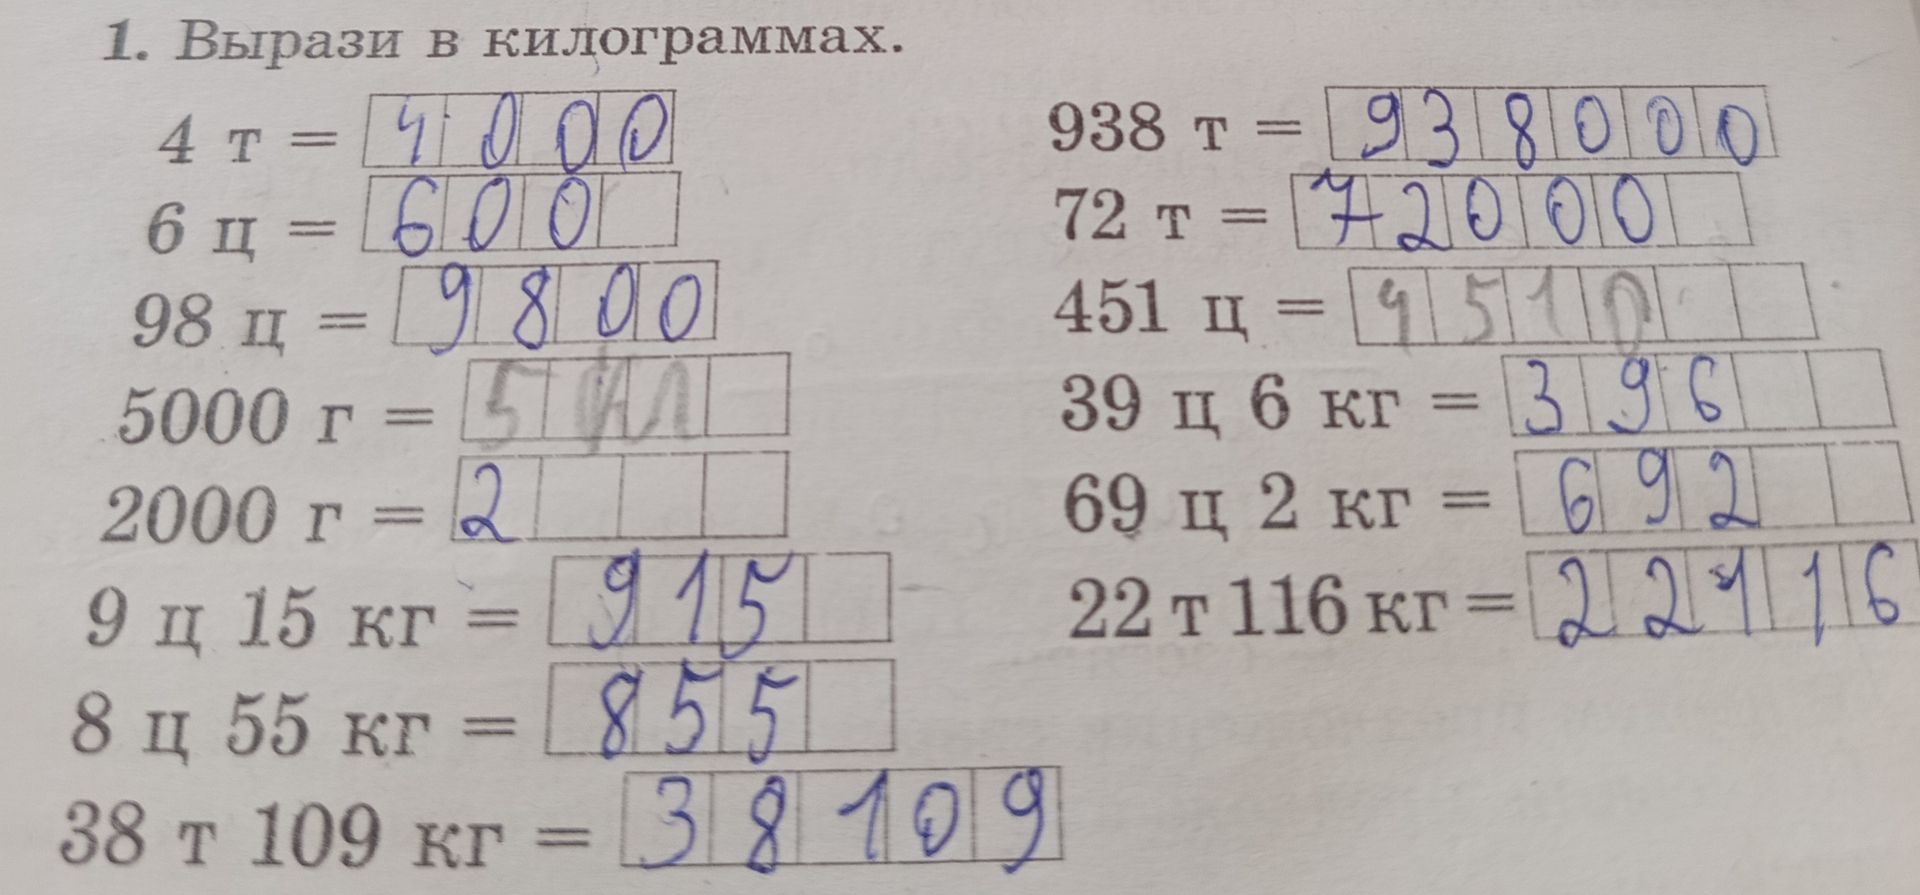 1. Вырази в килограммах.
4 т = 4000
6 ц = 600
98 ц = 9800
5000 г = 5
2000 г = 2
9 ц 15 кг = 915
8 ц 55 кг = 855
38 т 109 кг = 38109
938 т = 938000
72 т = 72000
451 ц = 4510
39 ц 6 кг = 396
69 ц 2 кг = 692
22 т 116 кг = 22116